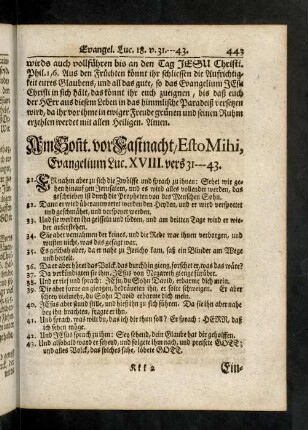 Evangel. Luc. 18. v. 31---43. 443
wirds auch vollführen bis an den Tag JESU Christi.
Phil. 1, 6. Aus den Früchten könnt ihr schliessen die Aufrichtig-
keit eures Glaubens, und all das gute, so das Evangelium JEsu
Christi in sich hält, das könnt ihr euch zueignen, bis daß euch
der HErr aus diesem Leben in das himmlische Paradeiß versetzen
wird, da ihr vor ihme in ewiger Freude grünen und seinen Ruhm
erzehlen werdet mit allen Heiligen. Amen.
Am Soñt. vor Fastnacht / Esto Mihi,
Evangelium Luc. XVIII. vers 31---43.
31. ER nahm aber zu sich die Zwölffe und sprach zu ihnen: Sehet wir ge-
hen hinauf gen Jerusalem, und es wird alles vollendet werden, das
geschrieben ist durch die Propheten von des Menschen Sohn.
32. Dann er wird überantwortet werden den Heyden, und er wird verspottet
und geschmähet, und verspeyet werden.
33. Und sie werden ihn geisseln und tödten, und am dritten Tage wird er wie-
der auferstehen.
34. Sie aber vernahmen der keines, und die Rede war ihnen verborgen, und
wusten nicht, was das gesagt war.
35. Es geschah aber, da er nahe zu Jericho kam, saß ein Blinder am Wege
und bettelt.
36. Da er aber höret das Volck das durchhin gieng, forschet er, was das wäre?
37. Da verkündigten sie ihm, JEsus von Nazareth gienge fürüber.
38. Und er rief und sprach: JEsu, du Sohn David, erbarme dich mein.
39. Die aber forne an giengen, bedräueten ihn, er solte schweigen. Er aber
schrey vielmehr, du Sohn David erbarme dich mein.
40. JEsus aber stund stille, und hieß ihn zu sich führen. Da sie ihn aber nahe
bey ihn brachten, fragte er ihn,
41. Und sprach, was wilt du, das ich dir thun soll? Er sprach: HERR, daß
ich sehen möge.
42. Und JEsus sprach zu ihm: Sey sehend, dein Glaube hat dir geholffen.
43. Und alsobald ward er sehend, und folgete ihm nach, und preisete GOTT;
und alles Volck, das solches sahe, lobete GOTT.
Kkk 2 Ein-